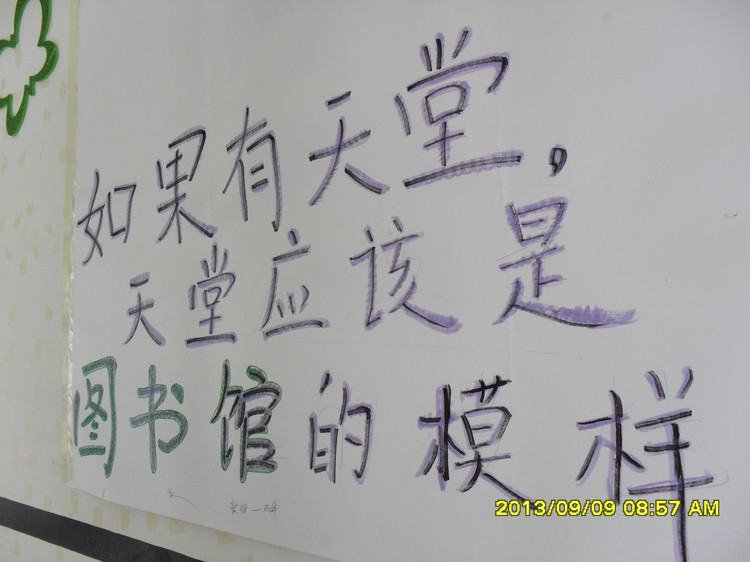 如果有天堂,
天堂应该是
图书馆的模样
2013/09/09 08:57 AM